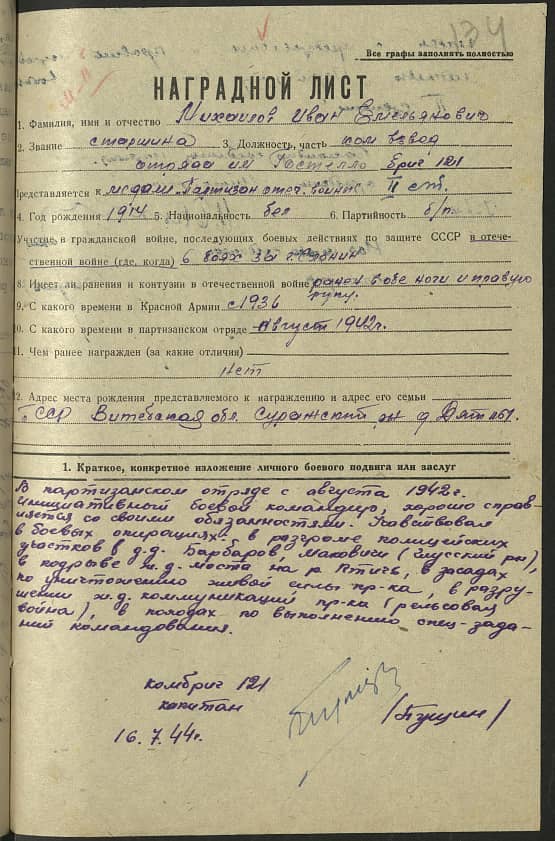 Все графы заполнять полностью
НАГРАДНОЙ ЛИСТ
1. Фамилия, имя и отчество Михайлов Иван Емельянович
2. Звание старшина 3. Должность, часть ком взвод
отряда им Гастелло бриг 121
Представляется к медали Партизан отеч. войны II ст.
4. Год рождения 1914 5. Национальность бел 6. Партийность б/п
Участие в гражданской войне, последующих боевых действиях по защите СССР в отече-
ственной войне (где, когда) в боях за г.
8. Имеет ли ранения и контузии в отечественной войне ранен в обе ноги и правую
руку.
9. С какого времени в Красной Армии с 1936
10. С какого времени в партизанском отряде Август 1942г.
11. Чем ранее награжден (за какие отличия)
нет
12. Адрес места рождения представляемого к награждению и адрес его семьи
БССР Витебская обл. Суражский рн д.
1. Краткое, конкретное изложение личного боевого подвига или заслуг
В партизанском отряде с августа 1942г.
инициативный боевой командир, хорошо справ-
ляется со своими обязанностями. Участвовал
в боевых операциях: в разгроме полицейских
участков в д.д. Барбаров, Маковичи (Глусский рн),
в подрыве ж.д. моста на р. Птичь, в засадах
по уничтожению живой силы пр-ка, в разру-
шении ж.д. коммуникаций пр-ка (рельсовая
война), в походах по выполнению спец-зада-
ний командования.
комбриг 121
капитан
/Пущин/
16.7.44г.